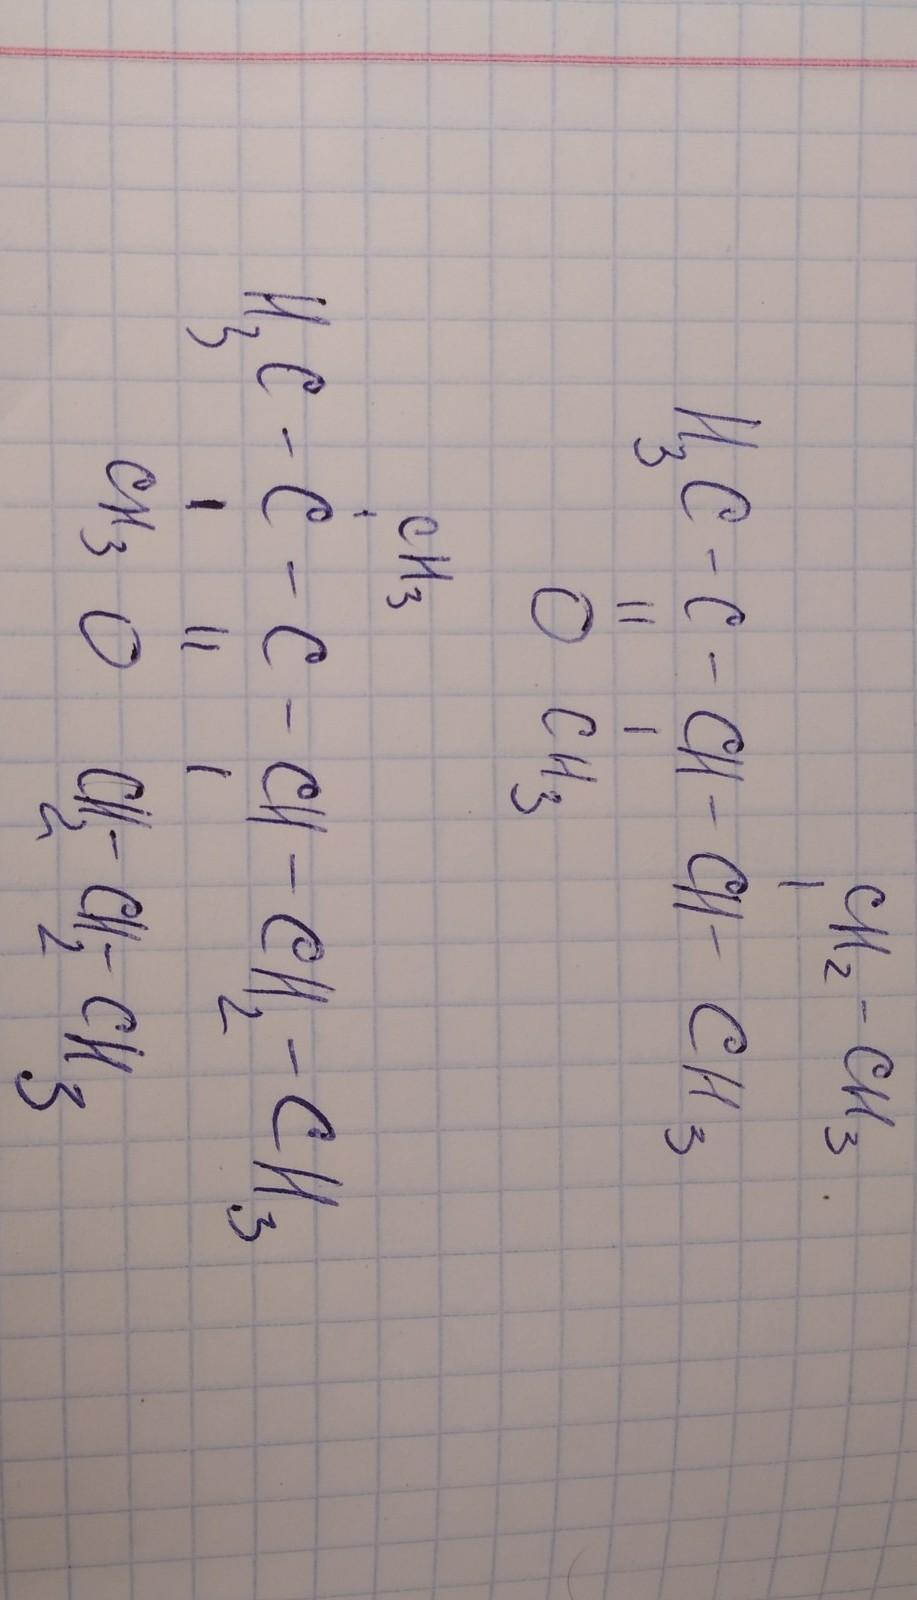 CH₂-CH₃
H₃C-C-CH-CH-CH₃
O CH₃
CH₃
H₃C-C-C-CH-CH₂-CH₃
CH₃ O CH₂-CH₂-CH₃